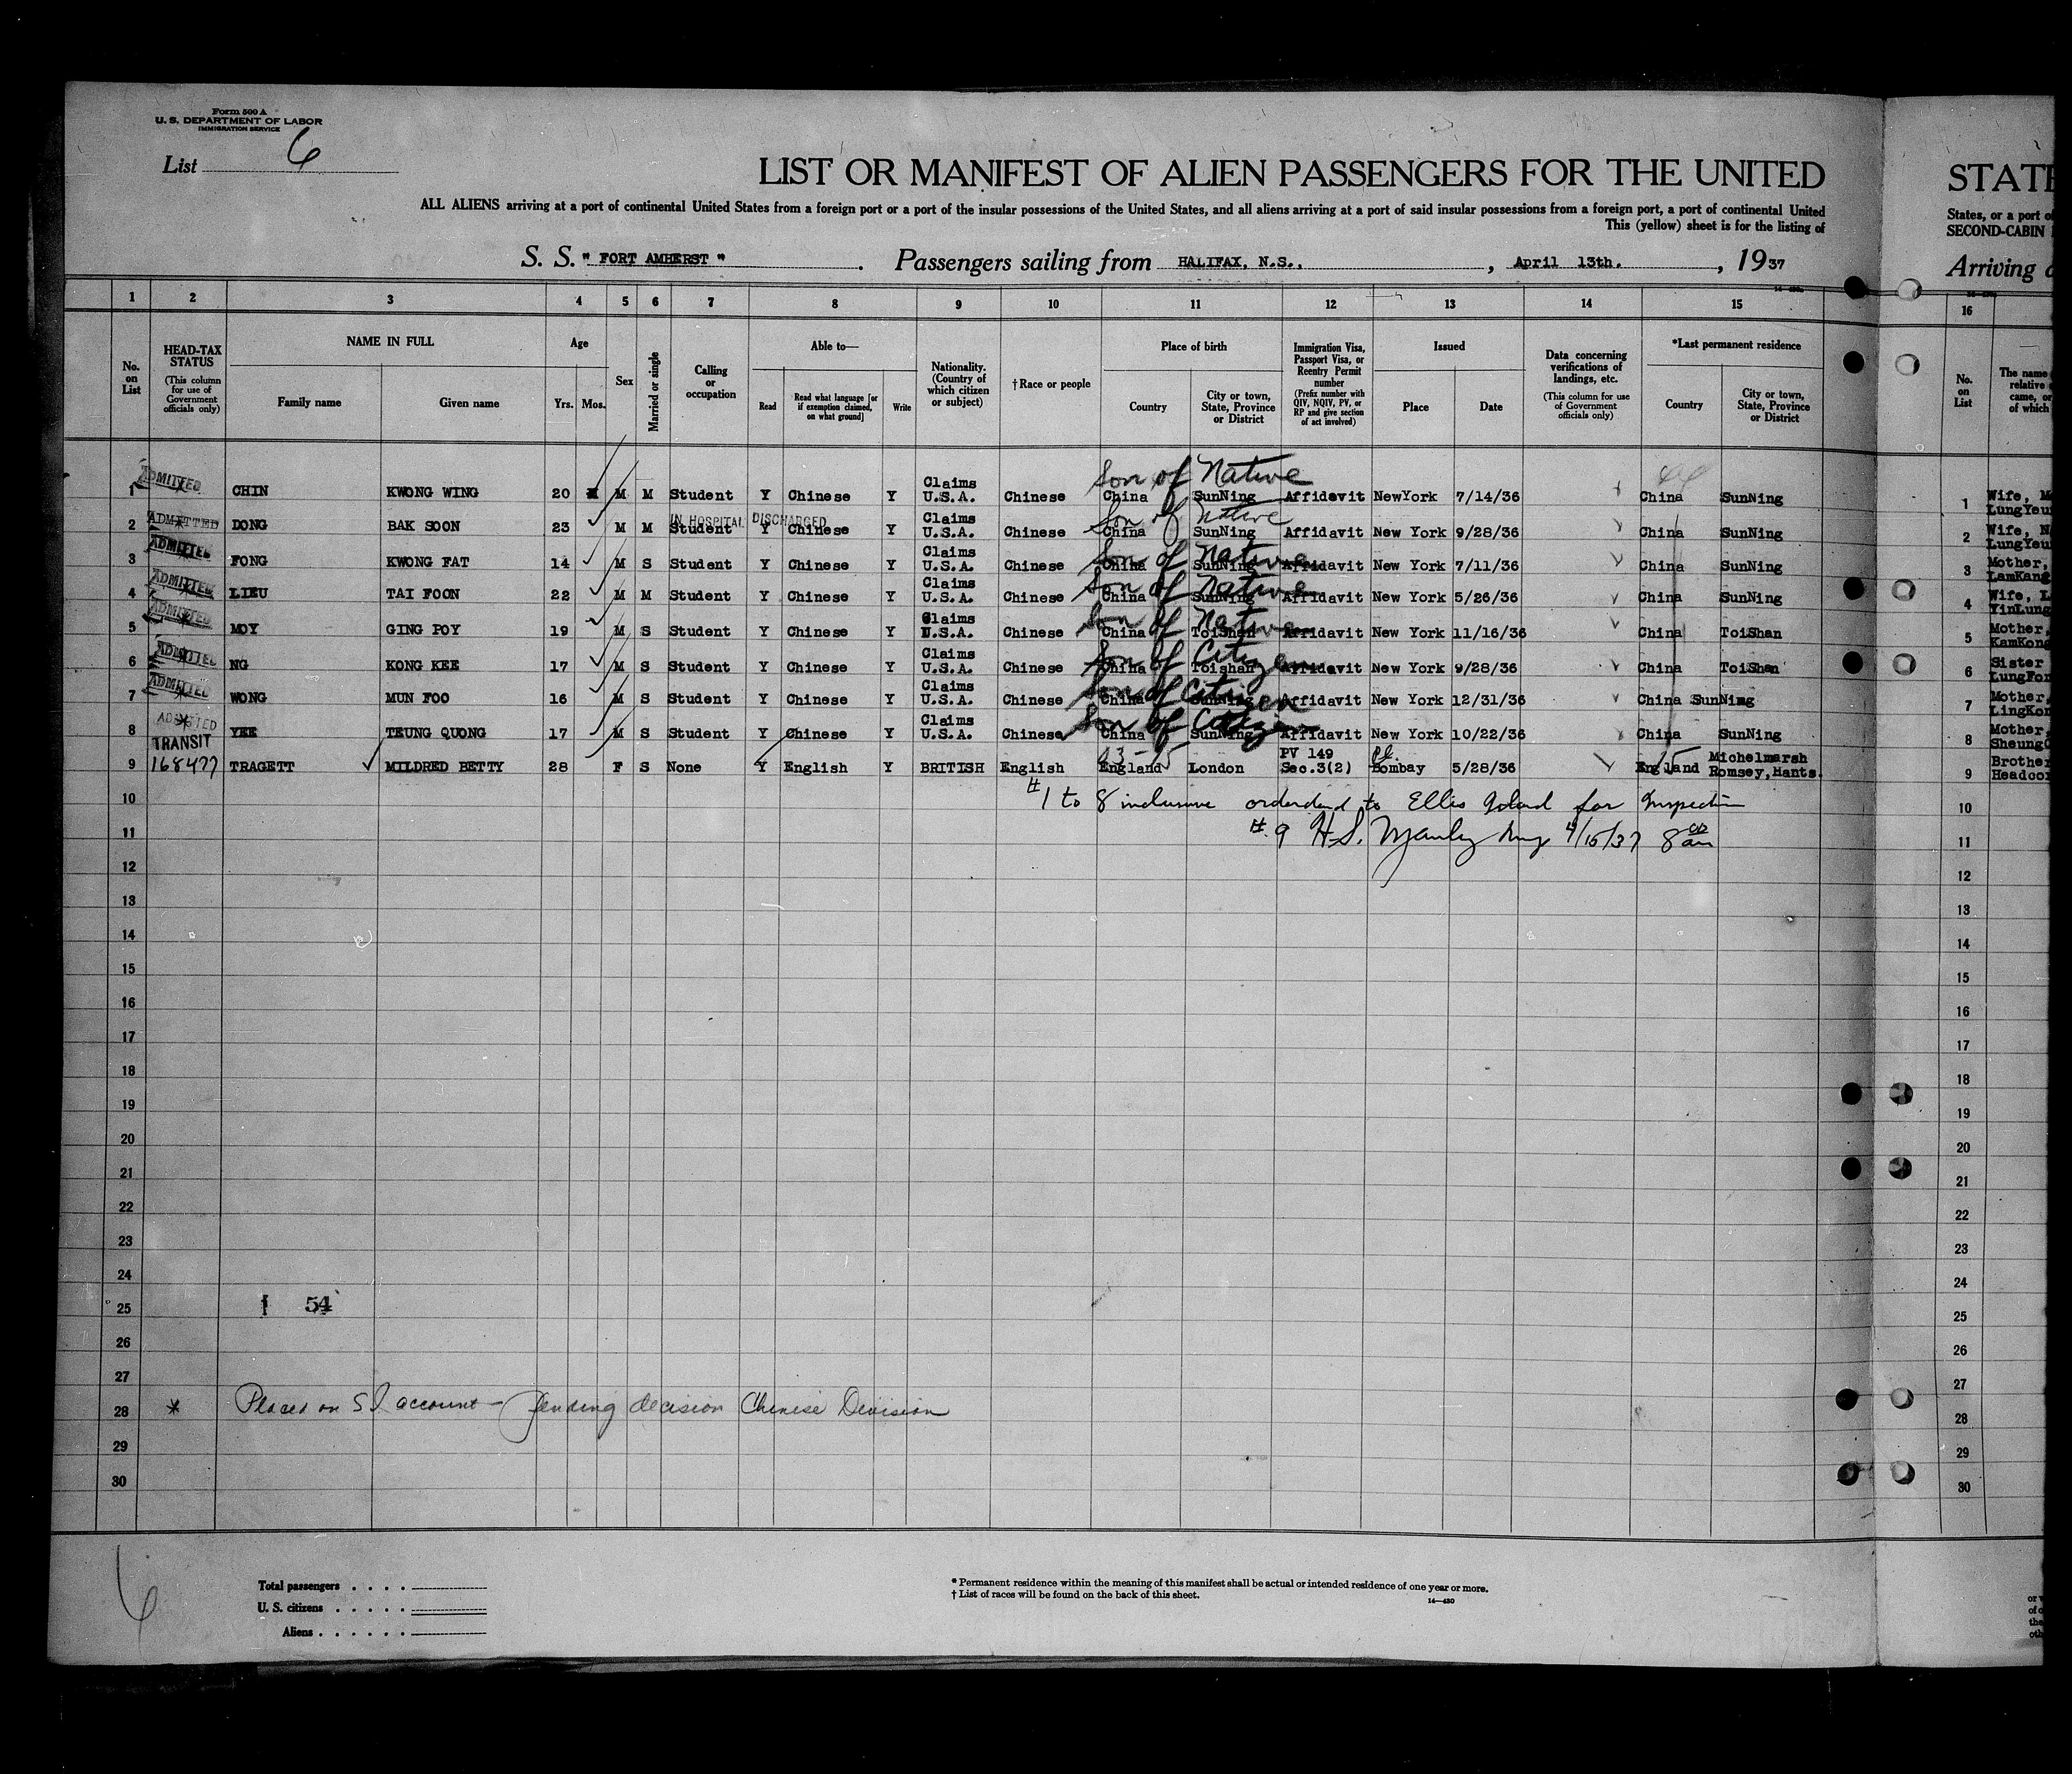 Form 500 A
U. S. DEPARTMENT OF LABOR
IMMIGRATION SERVICE
List 6
LIST OR MANIFEST OF ALIEN PASSENGERS FOR THE UNITED
STATE
ALL ALIENS arriving at a port of continental United States from a foreign port or a port of the insular possessions of the United States, and all aliens arriving at a port of said insular possessions from a foreign port, a port of continental United
States, or a port o
This (yellow) sheet is for the listing of
SECOND-CABIN
S. S. " FORT AMHERST " . Passengers sailing from HALIFAX, N.S., , April 13th. , 1937
Arriving
1 2 3 4 5 6 7 8 9 10 11 12 13 14 15 16
No. on List
HEAD-TAX STATUS
(This column for use of Government officials only)
NAME IN FULL
Family name
Given name
Age
Yrs. Mos.
Sex
Married or single
Calling or occupation
Able to—
Read
Read what language [or if exemption claimed, on what ground]
Write
Nationality. (Country of which citizen or subject)
† Race or people
Place of birth
Country
City or town, State, Province or District
Immigration Visa, Passport Visa, or Reentry Permit number
(Prefix number with QIV, NQIV, PV, or RP and give section of act involved)
Issued
Place
Date
Data concerning verifications of landings, etc.
(This column for use of Government officials only)
*Last permanent residence
Country
City or town, State, Province or District
No. on List
The name
relative
came, or
of which
ADMITTED
Son of Native
1 CHIN KWONG WING 20 M M Student Y Chinese Y Claims U.S.A. Chinese China SunNing Affidavit NewYork 7/14/36 China SunNing 1 Wife, LungYeu
IN HOSPITAL DISCHARGED
ADMITTED
Son of Native
2 DONG BAK SOON 23 M M Student Y Chinese Y Claims U.S.A. Chinese China SunNing Affidavit New York 9/28/36 China SunNing 2 Wife, N LungYeu
ADMITTED
Son of Native
3 FONG KWONG FAT 14 M S Student Y Chinese Y Claims U.S.A. Chinese China SunNing Affidavit New York 7/11/36 China SunNing 3 Mother, LamKang
ADMITTED
Son of Native
4 LIEU TAI FOON 22 M M Student Y Chinese Y Claims U.S.A. Chinese China SunNing Affidavit New York 5/26/36 China SunNing 4 Wife, L YinLung
ADMITTED
Son of Native
5 MOY GING POY 19 M S Student Y Chinese Y Claims U.S.A. Chinese China ToiShan Affidavit New York 11/16/36 China ToiShan 5 Mother, KamKong
ADMITTED
Son of Citizen
6 NG KONG KEE 17 M S Student Y Chinese Y Claims U.S.A. Chinese China Toishan Affidavit New York 9/28/36 China ToiShan 6 Sister LungFon
ADMITTED
Son of Citizen
7 WONG MUN FOO 16 M S Student Y Chinese Y Claims U.S.A. Chinese China SunNing Affidavit New York 12/31/36 China SunNing 7 Mother, LingKon
ADMITTED
Son of Citizen
8 YEE TEUNG QUONG 17 M S Student Y Chinese Y Claims U.S.A. Chinese China SunNing Affidavit New York 10/22/36 China SunNing 8 Mother, Sheung
TRANSIT
9 168477 TRAGETT MILDRED BETTY 28 F S None Y English Y BRITISH English England London PV 149 Sec.3(2) Bombay 5/28/36 England Michelmarsh Romsey,Hants. 9 Brother Headcor
10 #1 to 8 inclusive orderdend to Ellis Island for Inspection 10
11 #9 H.S. Manley 4/15/37 8 am 11
12 12
13 13
14 14
15 15
16 16
17 17
18 18
19 19
20 20
21 21
22 22
23 23
24 24
25 54 25
26 26
27 27
28 * Placed on S I account — pending decision Chinese Division 28
29 29
30 30
6
Total passengers . . . .
U. S. citizens . . . . .
Aliens . . . . . .
* Permanent residence within the meaning of this manifest shall be actual or intended residence of one year or more.
† List of races will be found on the back of this sheet.
14—430